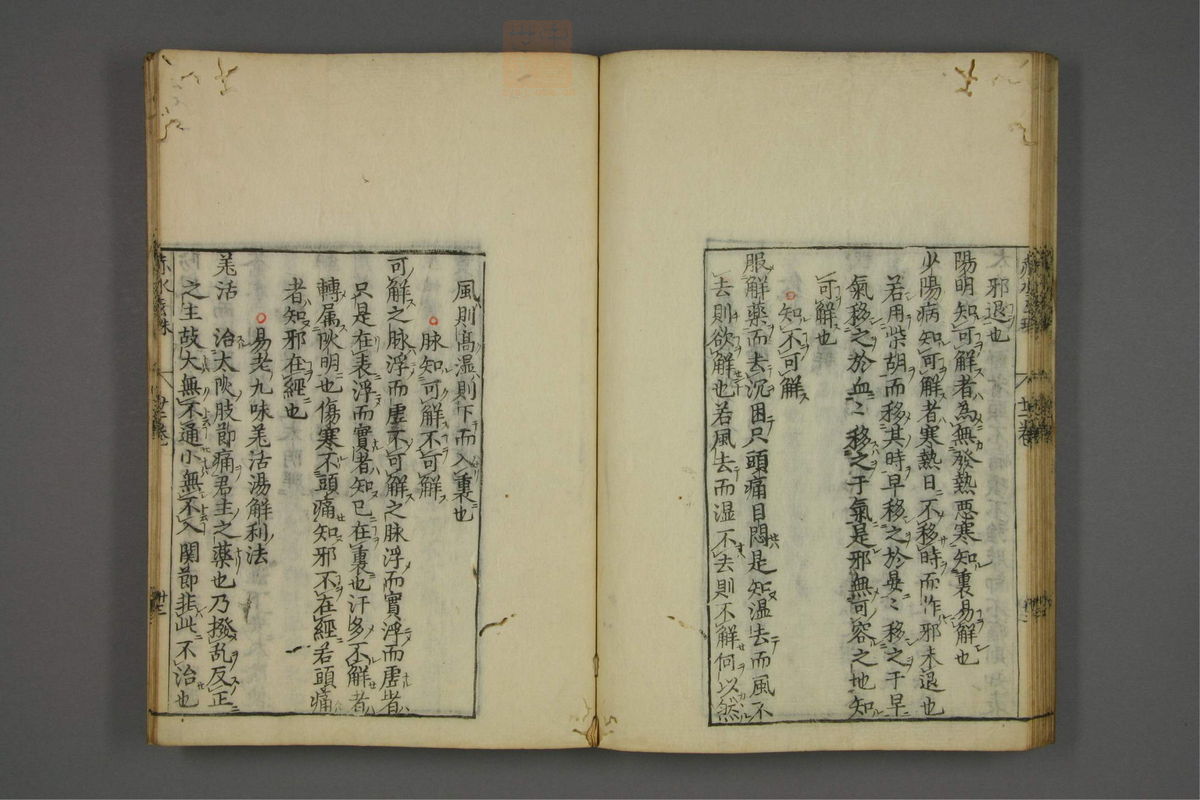 邪退也
陽明知可解者為無發熱惡寒知裏易解也
少陽病知可解者寒熱日不移時而作邪未退也
若用柴胡而移其時早移之於晏〻移之于早
氣移之於血〻移之于氣是邪無可容之地知
可解也
知不可解
服解藥而去沉困只頭痛目悶是知温去而風不
去則欲解也若風去而湿不去則不解何以然
風則高湿則下而入裏也
脉知可解不可解
可解之脉浮而虚不可解之脉浮而實浮而虚者
只是在表浮而實者知已在裏也汗多不解者
轉属阦明也傷寒不頭痛知邪不在經若頭痛
者知邪在經也
易老九味羌活湯解利法
羌活 治太阦肢節痛君主之藥也乃撥乱反正
之主故大無不通小無不入關節非此不治也
赤水玄珠 廿二卷